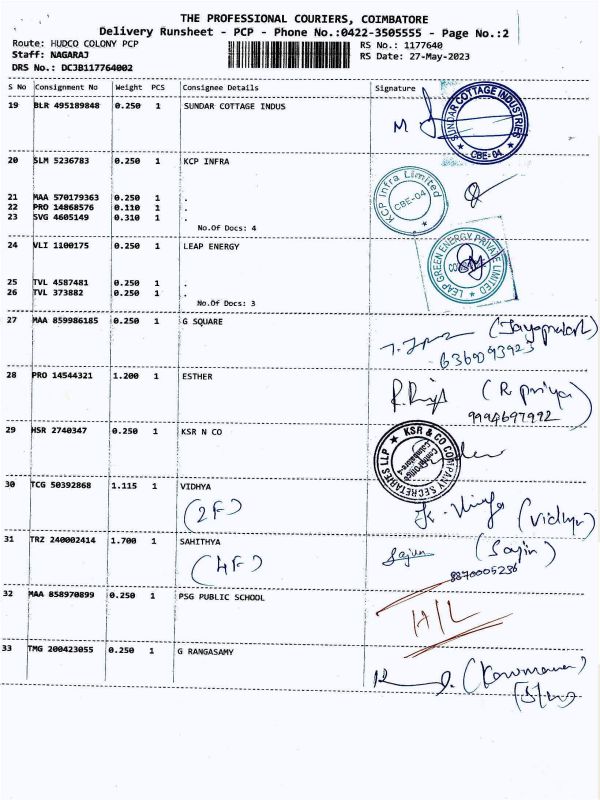 THE PROFESSIONAL COURIERS, COIMBATORE
Delivery Runsheet - PCP - Phone No.:0422-3505555 - Page No.:2
Route: HUDCO COLONY PCP RS No.: 1177640
Staff: NAGARAJ RS Date: 27-May-2023
DRS No.: DCJB117764002
S No Consignment No Weight PCS Consignee Details Signature
19 BLR 495189848 0.250 1 SUNDAR COTTAGE INDUS
M
SUNDAR COTTAGE INDUSTRIES
CBE-04
20 SLM 5236783 0.250 1 KCP INFRA
KCP Infra Limited
CBE-04
21 MAA 570179363 0.250 1 .
22 PRO 14868576 0.110 1 .
23 SVG 4605149 0.310 1 .
No.Of Docs: 4
24 VLI 1100175 0.250 1 LEAP ENERGY
LEAP GREEN ENERGY PRIVATE LIMITED
25 TVL 4587481 0.250 1 .
26 TVL 373882 0.250 1 .
No.Of Docs: 3
27 MAA 859986185 0.250 1 G SQUARE
28 PRO 14544321 1.200 1 ESTHER
(R priya)
9994697992
29 HSR 2740347 0.250 1 KSR N CO
KSR & CO COMPANY SECRETARIES LLP
30 TCG 50392868 1.115 1 VIDHYA
(2F)
(Vidhya)
31 TRZ 240002414 1.700 1 SAHITHYA
(4F)
8870005236
32 MAA 858970899 0.250 1 PSG PUBLIC SCHOOL
H/L
33 TMG 200423055 0.250 1 G RANGASAMY